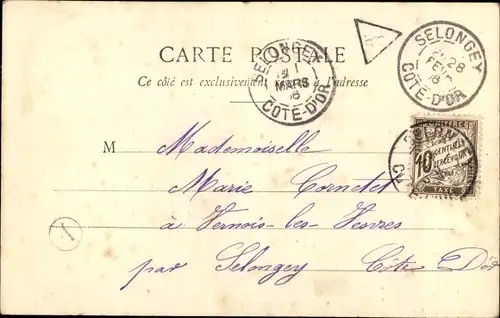 CARTE POSTALE
Ce côté est exclusivement l'adresse
SELONGEY
1
MARS
CÔTE-D'OR
SELONGEY
28
FEVR
CÔTE-D'OR
10
CENTIMES
A PERCEVOIR
TAXE
M Mademoiselle
Marie Cornetet
à Vernois-les-Vesvres
par Selongey Côte D'or